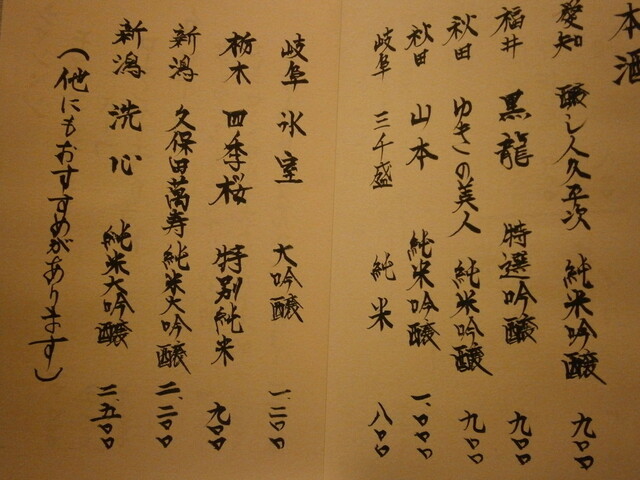 本酒
愛知 醸し人久平次 純米吟醸 九〇〇
福井 黒龍 特選吟醸 九〇〇
秋田 ゆきの美人 純米吟醸 九〇〇
秋田 山本 純米吟醸 一、〇〇〇
岐阜 三千盛 純米 八〇〇
岐阜 氷室 大吟醸 一、二〇〇
栃木 四季桜 特別純米 九〇〇
新潟 久保田萬寿 純米大吟醸 二、二〇〇
新潟 洗心 純米大吟醸 二、五〇〇
（他にもおすすめがあります）